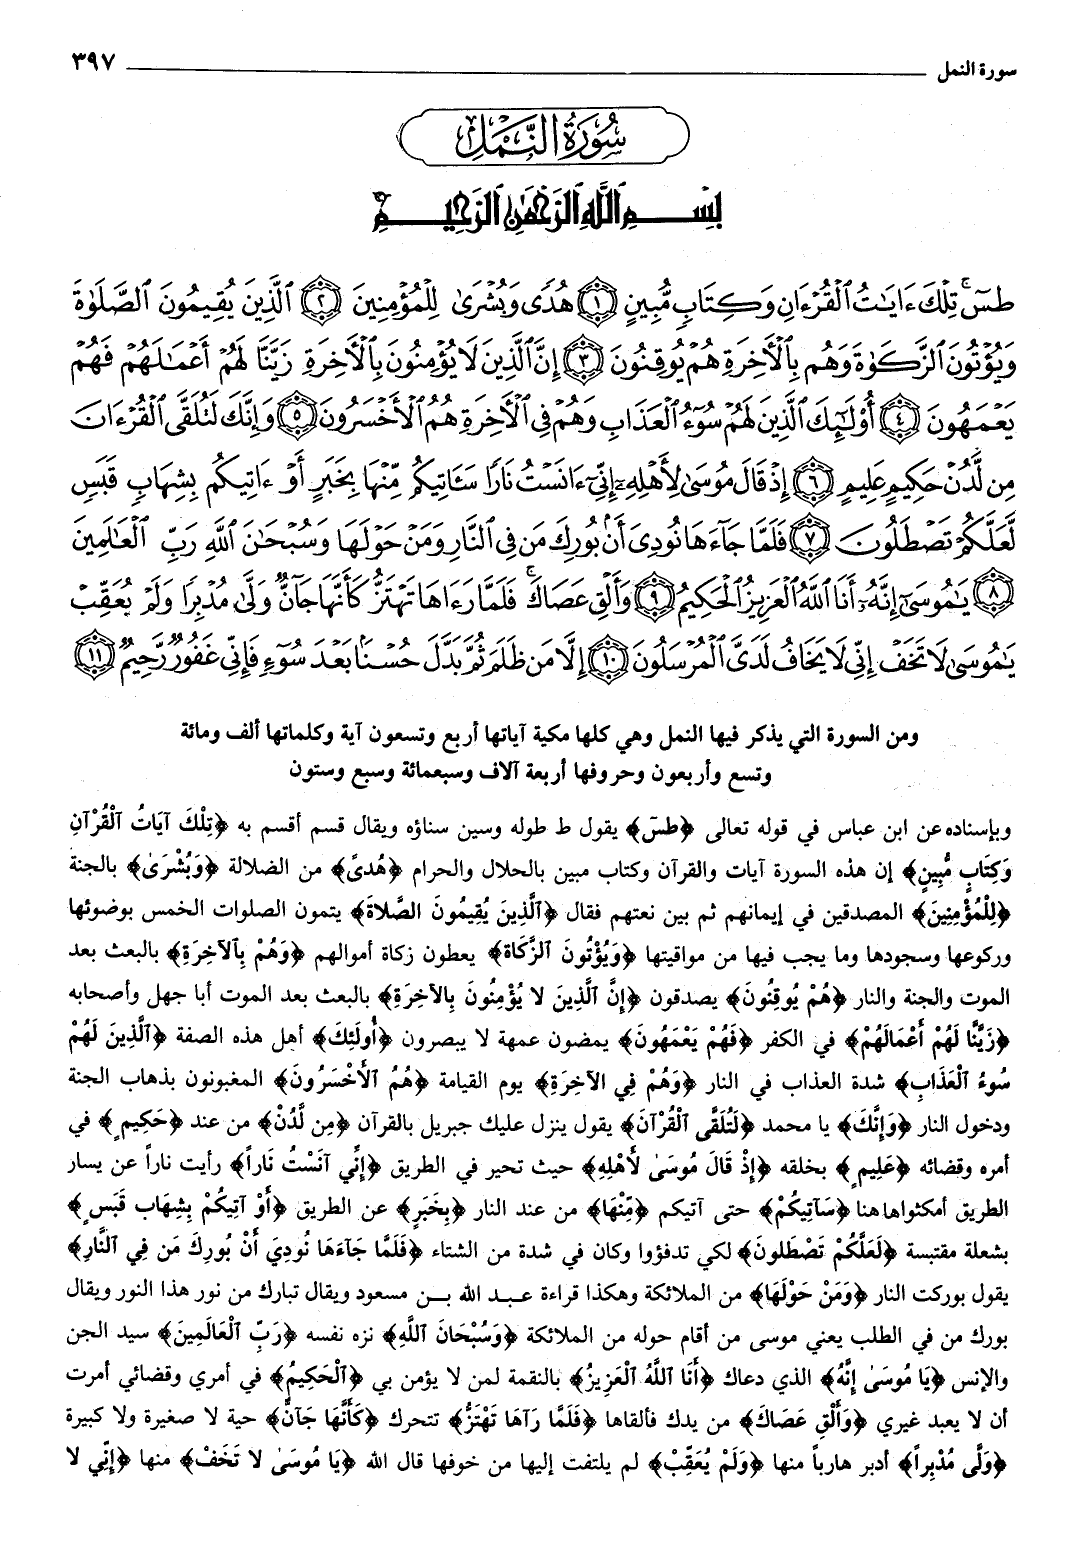 سورة النمل ٣٩٧
سُورَةُ النَّمْلِ
بِسْمِ ٱللَّهِ ٱلرَّحْمَٰنِ ٱلرَّحِيمِ
طسٓ ۚ تِلْكَ ءَايَٰتُ ٱلْقُرْءَانِ وَكِتَابٍ مُّبِينٍ ١ هُدًى وَبُشْرَىٰ لِلْمُؤْمِنِينَ ٢ ٱلَّذِينَ يُقِيمُونَ ٱلصَّلَوٰةَ
وَيُؤْتُونَ ٱلزَّكَوٰةَ وَهُم بِٱلْأَخِرَةِ هُمْ يُوقِنُونَ ٣ إِنَّ ٱلَّذِينَ لَا يُؤْمِنُونَ بِٱلْأَخِرَةِ زَيَّنَّا لَهُمْ أَعْمَٰلَهُمْ فَهُمْ
يَعْمَهُونَ ٤ أُوْلَٰٓئِكَ ٱلَّذِينَ لَهُمْ سُوٓءُ ٱلْعَذَابِ وَهُمْ فِى ٱلْأَخِرَةِ هُمُ ٱلْأَخْسَرُونَ ٥ وَإِنَّكَ لَتُلَقَّى ٱلْقُرْءَانَ
مِن لَّدُنْ حَكِيمٍ عَلِيمٍ ٦ إِذْ قَالَ مُوسَىٰ لِأَهْلِهِۦٓ إِنِّىٓ ءَانَسْتُ نَارًا سَـَٔاتِيكُم مِّنْهَا بِخَبَرٍ أَوْ ءَاتِيكُم بِشِهَابٍ قَبَسٍ
لَّعَلَّكُمْ تَصْطَلُونَ ٧ فَلَمَّا جَآءَهَا نُودِىَ أَنۢ بُورِكَ مَن فِى ٱلنَّارِ وَمَنْ حَوْلَهَا وَسُبْحَٰنَ ٱللَّهِ رَبِّ ٱلْعَٰلَمِينَ
٨ يَٰمُوسَىٰٓ إِنَّهُۥٓ أَنَا ٱللَّهُ ٱلْعَزِيزُ ٱلْحَكِيمُ ٩ وَأَلْقِ عَصَاكَ ۚ فَلَمَّا رَءَاهَا تَهْتَزُّ كَأَنَّهَا جَآنٌّ وَلَّىٰ مُدْبِرًا وَلَمْ يُعَقِّبْ
يَٰمُوسَىٰ لَا تَخَفْ إِنِّى لَا يَخَافُ لَدَىَّ ٱلْمُرْسَلُونَ ١٠ إِلَّا مَن ظَلَمَ ثُمَّ بَدَّلَ حُسْنًۢا بَعْدَ سُوٓءٍ فَإِنِّى غَفُورٌ رَّحِيمٌ ١١
ومن السورة التي يذكر فيها النمل وهي كلها مكية آياتها أربع وتسعون آية وكلماتها ألف ومائة
وتسع وأربعون وحروفها أربعة آلاف وسبعمائة وسبع وستون
وبإسناده عن ابن عباس في قوله تعالى ﴿طسٓ﴾ يقول ط طوله وسين سناؤه ويقال قسم أقسم به ﴿تِلْكَ آيَاتُ ٱلْقُرْآنِ
وَكِتَابٍ مُّبِينٍ﴾ إن هذه السورة آيات والقرآن وكتاب مبين بالحلال والحرام ﴿هُدًى﴾ من الضلالة ﴿وَبُشْرَىٰ﴾ بالجنة
﴿لِلْمُؤْمِنِينَ﴾ المصدقين في إيمانهم ثم بين نعتهم فقال ﴿ٱلَّذِينَ يُقِيمُونَ ٱلصَّلاَةَ﴾ يتمون الصلوات الخمس بوضوئها
وركوعها وسجودها وما يجب فيها من مواقيتها ﴿وَيُؤْتُونَ ٱلزَّكَاةَ﴾ يعطون زكاة أموالهم ﴿وَهُمْ بِٱلآخِرَةِ﴾ بالبعث بعد
الموت والجنة والنار ﴿هُمْ يُوقِنُونَ﴾ يصدقون ﴿إِنَّ ٱلَّذِينَ لاَ يُؤْمِنُونَ بِٱلآخِرَةِ﴾ بالبعث بعد الموت أبا جهل وأصحابه
﴿زَيَّنَّا لَهُمْ أَعْمَالَهُمْ﴾ في الكفر ﴿فَهُمْ يَعْمَهُونَ﴾ يمضون عمهة لا يبصرون ﴿أُولَئِكَ﴾ أهل هذه الصفة ﴿ٱلَّذِينَ لَهُمْ
سُوءُ ٱلْعَذَابِ﴾ شدة العذاب في النار ﴿وَهُمْ فِي ٱلآخِرَةِ﴾ يوم القيامة ﴿هُمُ ٱلأَخْسَرُونَ﴾ المغبونون بذهاب الجنة
ودخول النار ﴿وَإِنَّكَ﴾ يا محمد ﴿لَتُلَقَّى ٱلْقُرْآنَ﴾ يقول ينزل عليك جبريل بالقرآن ﴿مِن لَّدُنْ﴾ من عند ﴿حَكِيمٍ﴾ في
أمره وقضائه ﴿عَلِيمٍ﴾ بخلقه ﴿إِذْ قَالَ مُوسَىٰ لأَهْلِهِ﴾ حيث تحير في الطريق ﴿إِنِّي آنَسْتُ نَاراً﴾ رأيت ناراً عن يسار
الطريق أمكثوا هاهنا ﴿سَآتِيكُمْ﴾ حتى آتيكم ﴿مِّنْهَا﴾ من عند النار ﴿بِخَبَرٍ﴾ عن الطريق ﴿أَوْ آتِيكُمْ بِشِهَابٍ قَبَسٍ﴾
بشعلة مقتبسة ﴿لَعَلَّكُمْ تَصْطَلُونَ﴾ لكي تدفؤوا وكان في شدة من الشتاء ﴿فَلَمَّا جَآءَهَا نُودِيَ أَنْ بُورِكَ مَن فِي ٱلنَّارِ﴾
يقول بوركت النار ﴿وَمَنْ حَوْلَهَا﴾ من الملائكة وهكذا قراءة عبد الله بن مسعود ويقال تبارك من نور هذا النور ويقال
بورك من في الطلب يعني موسى من أقام حوله من الملائكة ﴿وَسُبْحَانَ ٱللَّهِ﴾ نزه نفسه ﴿رَبِّ ٱلْعَالَمِينَ﴾ سيد الجن
والإنس ﴿يَا مُوسَىٰ إِنَّهُ﴾ الذي دعاك ﴿أَنَا ٱللَّهُ ٱلْعَزِيزُ﴾ بالنقمة لمن لا يؤمن بي ﴿ٱلْحَكِيمُ﴾ في أمري وقضائي أمرت
أن لا يعبد غيري ﴿وَأَلْقِ عَصَاكَ﴾ من يدك فألقاها ﴿فَلَمَّا رَآهَا تَهْتَزُّ﴾ تتحرك ﴿كَأَنَّهَا جَآنٌّ﴾ حية لا صغيرة ولا كبيرة
﴿وَلَّى مُدْبِراً﴾ أدبر هارباً منها ﴿وَلَمْ يُعَقِّبْ﴾ لم يلتفت إليها من خوفها قال الله ﴿يَا مُوسَىٰ لاَ تَخَفْ﴾ منها ﴿إِنِّي لاَ